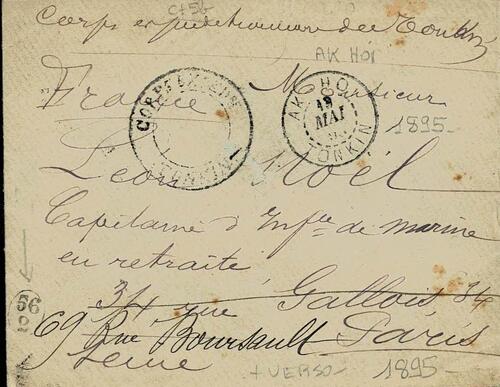 C+56
Corps expéditionnaire du Tonkin
AK HOI
France Monsieur
CORR. MILIT.
TONKIN
AK HOI
19
MAI
95
TONKIN
1895-
Léon Noël
Capitaine d'Infie de marine
en retraite
34 rue Gallois 34
56
69 Rue Boursault Paris
Seine
+ VERSO- 1895